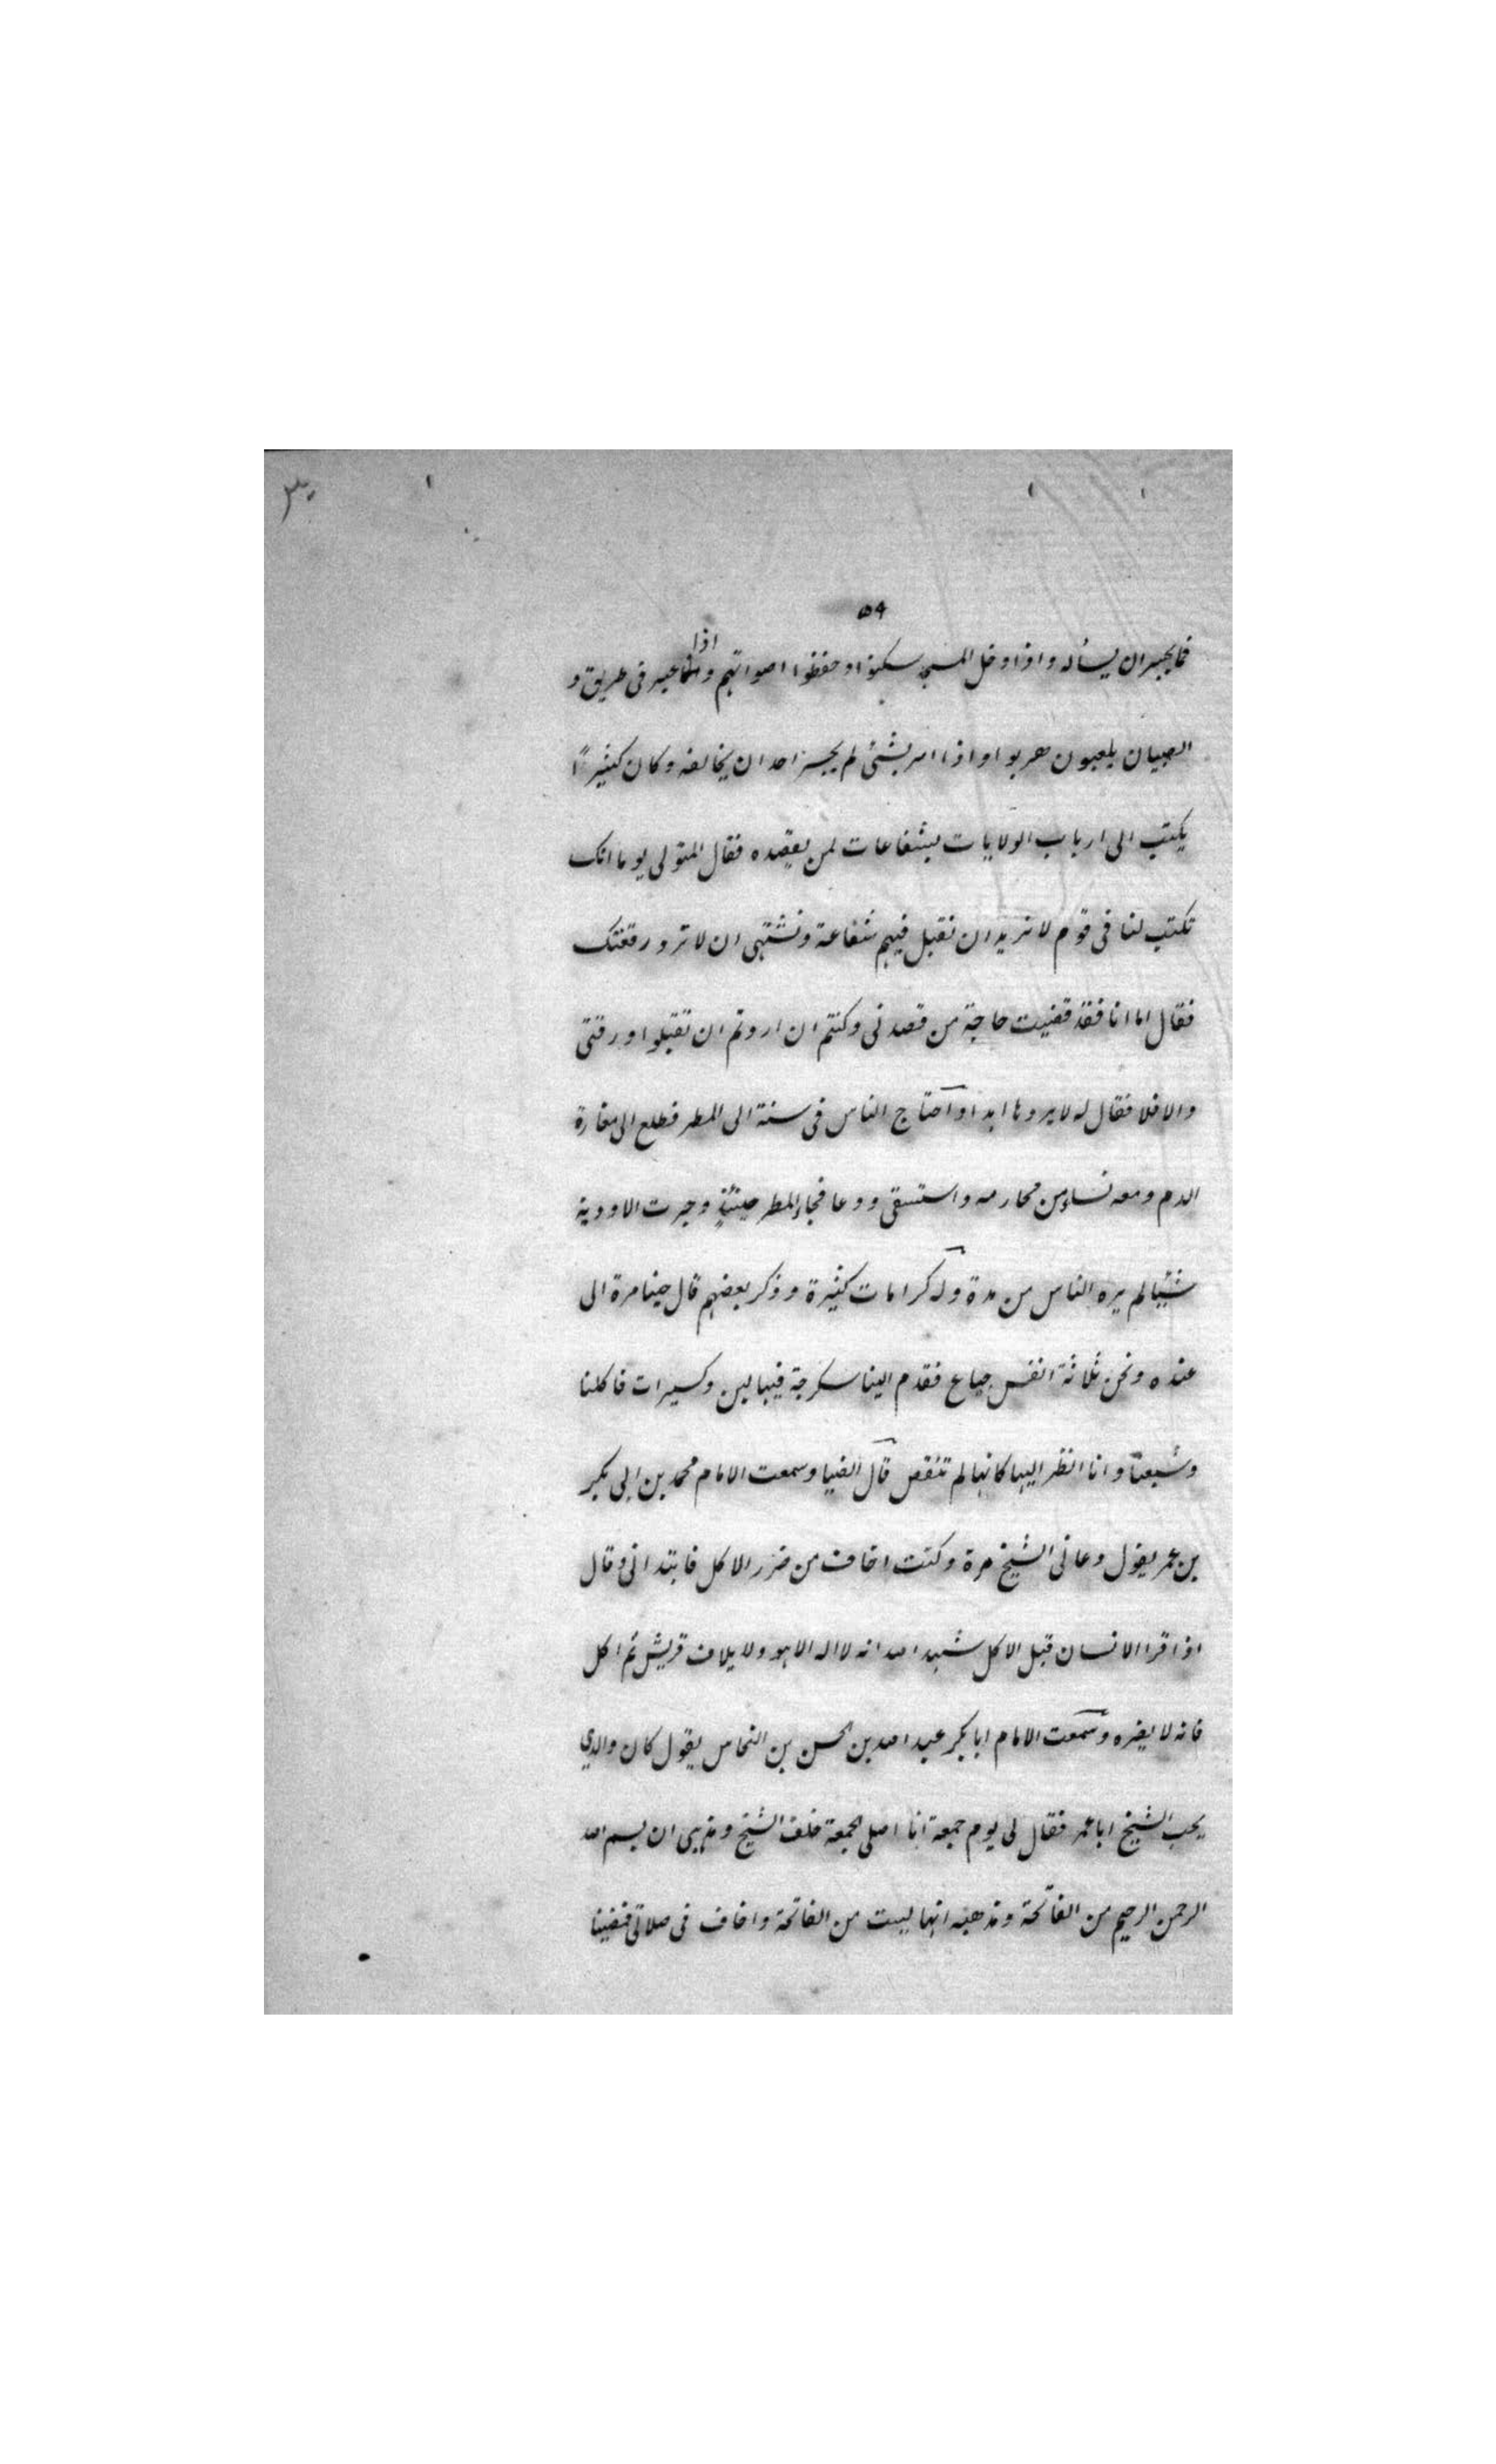 ٥٩
فما يجسر ان يسأله واذا دخل المسجد سكتوا وخفظوا اصواتهم واذا عبر فى طريق و
الصبيان يلعبون هربوا واذا امر بشئ لم يجسر احد ان يخالفه وكان كثيراً
يكتب الى ارباب الولايات بشفاعات لمن يقصده فقال المتولى يوما انك
تكتب لنا فى قوم لا نريد ان نقبل فيهم شفاعة ونشتهى ان لا نرد رقعتك
فقال اما انا فقد قضيت حاجة من قصدنى وكنتم ان اردتم ان تقبلوا ورقتى
والا فلا فقال له لا يردها ابدا واحتاج الناس فى سنة الى المطر فطلع الى مغارة
الدم ومعه نساء من محارمه واستسقى ودعا فجاء المطر حينئذٍ وجرت الاودية
شيئا لم يره الناس من مدة وله كرامات كثيرة وذكر بعضهم قال جينا مرة الى
عنده ونحن ثلاثة انفس جياع فقدم الينا سكرجة فيها لبن وكسيرات فاكلنا
وشبعنا وانا انظر اليها كانها لم تنقص قال الضيا وسمعت الامام محمد بن ابى بكر
بن عمر يقول دعانى الشيخ مرة وكنت اخاف من ضرر الاكل فابتدانى وقال
اذا قرا الانسان قبل الاكل شهد الله انه لا اله الا هو ولايلاف قريش ثم اكل
فانه لا يضره وسمعت الامام ابا بكر عبد الله بن الحسن بن النحاس يقول كان والدي
يحب الشيخ ابا عمر فقال لى يوم جمعة انا اصلى الجمعة خلف الشيخ ومذهبى ان بسم الله
الرحمن الرحيم من الفاتحة ومذهبه انها ليست من الفاتحة واخاف فى صلاتى فمضينا